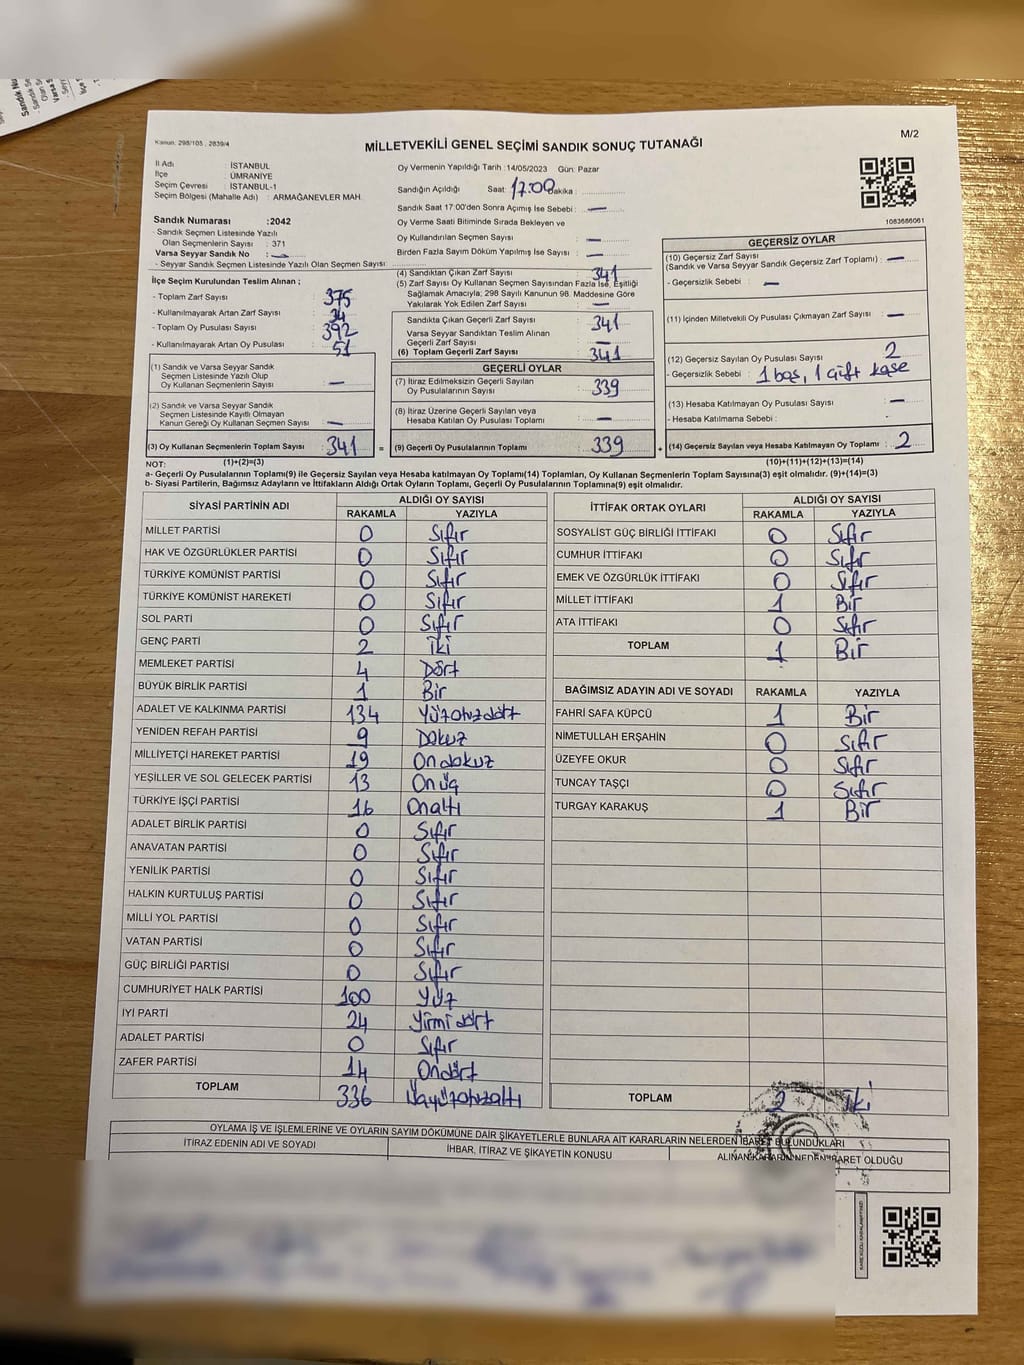 Kanun: 298/105 , 2839/4
MİLLETVEKİLİ GENEL SEÇİMİ SANDIK SONUÇ TUTANAĞI
M/2
İl Adı : İSTANBUL
İlçe : ÜMRANİYE
Seçim Çevresi : İSTANBUL-1
Seçim Bölgesi (Mahalle Adı) : ARMAĞANEVLER MAH.
Sandık Numarası : 2042
- Sandık Seçmen Listesinde Yazılı
Olan Seçmenlerin Sayısı : 371
Varsa Seyyar Sandık No : —
- Seyyar Sandık Seçmen Listesinde Yazılı Olan Seçmen Sayısı:
Oy Vermenin Yapıldığı Tarih :14/05/2023 Gün: Pazar
Sandığın Açıldığı Saat: 17:00 Dakika : ............
Sandık Saat 17:00'den Sonra Açımış İse Sebebi : —
Oy Verme Saati Bitiminde Sırada Bekleyen ve
Oy Kullandırılan Seçmen Sayısı : —
Birden Fazla Sayım Döküm Yapılmış İse Sayısı : —
1083686061
İlçe Seçim Kurulundan Teslim Alınan ;
- Toplam Zarf Sayısı : 375
- Kullanılmayarak Artan Zarf Sayısı : 34
- Toplam Oy Pusulası Sayısı : 392
- Kullanılmayarak Artan Oy Pusulası : 51
(1) Sandık ve Varsa Seyyar Sandık
Seçmen Listesinde Yazılı Olup
Oy Kullanan Seçmenlerin Sayısı : —
(2) Sandık ve Varsa Seyyar Sandık
Seçmen Listesinde Kayıtlı Olmayan
Kanun Gereği Oy Kullanan Seçmen Sayısı : —
(3) Oy Kullanan Seçmenlerin Toplam Sayısı : 341 =
(1)+(2)=(3)
(4) Sandıktan Çıkan Zarf Sayısı : 341
(5) Zarf Sayısı Oy Kullanan Seçmen Sayısından Fazla İse, Eşitliği
Sağlamak Amacıyla; 298 Sayılı Kanunun 98. Maddesine Göre
Yakılarak Yok Edilen Zarf Sayısı : —
Sandıkta Çıkan Geçerli Zarf Sayısı : 341
Varsa Seyyar Sandıktan Teslim Alınan
Geçerli Zarf Sayısı : —
(6) Toplam Geçerli Zarf Sayısı : 341
GEÇERLİ OYLAR
(7) İtiraz Edilmeksizin Geçerli Sayılan
Oy Pusulalarının Sayısı : 339
(8) İtiraz Üzerine Geçerli Sayılan veya
Hesaba Katılan Oy Pusulası Toplamı : —
(9) Geçerli Oy Pusulalarının Toplamı : 339 +
GEÇERSİZ OYLAR
(10) Geçersiz Zarf Sayısı
(Sandık ve Varsa Seyyar Sandık Geçersiz Zarf Toplamı) : —
- Geçersizlik Sebebi : —
(11) İçinden Milletvekili Oy Pusulası Çıkmayan Zarf Sayısı : —
(12) Geçersiz Sayılan Oy Pusulası Sayısı : 2
- Geçersizlik Sebebi : 1 boş, 1 çift kaşe
(13) Hesaba Katılmayan Oy Pusulası Sayısı : —
- Hesaba Katılmama Sebebi :
(14) Geçersiz Sayılan veya Hesaba Katılmayan Oy Toplamı : 2
(10)+(11)+(12)+(13)=(14)
NOT:
a- Geçerli Oy Pusulalarının Toplamı(9) ile Geçersiz Sayılan veya Hesaba katılmayan Oy Toplamı(14) Toplamları, Oy Kullanan Seçmenlerin Toplam Sayısına(3) eşit olmalıdır. (9)+(14)=(3)
b- Siyasi Partilerin, Bağımsız Adayların ve İttifakların Aldığı Ortak Oyların Toplamı, Geçerli Oy Pusulalarının Toplamına(9) eşit olmalıdır.
SİYASİ PARTİNİN ADI ALDIĞI OY SAYISI
RAKAMLA YAZIYLA
MİLLET PARTİSİ 0 Sıfır
HAK VE ÖZGÜRLÜKLER PARTİSİ 0 Sıfır
TÜRKİYE KOMÜNİST PARTİSİ 0 Sıfır
TÜRKİYE KOMÜNİST HAREKETİ 0 Sıfır
SOL PARTİ 0 Sıfır
GENÇ PARTİ 2 iki
MEMLEKET PARTİSİ 4 Dört
BÜYÜK BİRLİK PARTİSİ 1 Bir
ADALET VE KALKINMA PARTİSİ 134 Yüzotuzdört
YENİDEN REFAH PARTİSİ 9 Dokuz
MİLLİYETÇİ HAREKET PARTİSİ 19 Ondokuz
YEŞİLLER VE SOL GELECEK PARTİSİ 13 Onüç
TÜRKİYE İŞÇİ PARTİSİ 16 Onaltı
ADALET BİRLİK PARTİSİ 0 Sıfır
ANAVATAN PARTİSİ 0 Sıfır
YENİLİK PARTİSİ 0 Sıfır
HALKIN KURTULUŞ PARTİSİ 0 Sıfır
MİLLİ YOL PARTİSİ 0 Sıfır
VATAN PARTİSİ 0 Sıfır
GÜÇ BİRLİĞİ PARTİSİ 0 Sıfır
CUMHURİYET HALK PARTİSİ 100 Yüz
İYİ PARTİ 24 Yirmi dört
ADALET PARTİSİ 0 Sıfır
ZAFER PARTİSİ 14 Ondört
TOPLAM 336 Üçyüzotuzaltı
İTTİFAK ORTAK OYLARI ALDIĞI OY SAYISI
RAKAMLA YAZIYLA
SOSYALİST GÜÇ BİRLİĞİ İTTİFAKI 0 Sıfır
CUMHUR İTTİFAKI 0 Sıfır
EMEK VE ÖZGÜRLÜK İTTİFAKI 0 Sıfır
MİLLET İTTİFAKI 1 Bir
ATA İTTİFAKI 0 Sıfır
TOPLAM 1 Bir
BAĞIMSIZ ADAYIN ADI VE SOYADI RAKAMLA YAZIYLA
FAHRİ SAFA KÜPCÜ 1 Bir
NİMETULLAH ERŞAHİN 0 Sıfır
ÜZEYFE OKUR 0 Sıfır
TUNCAY TAŞÇI 0 Sıfır
TURGAY KARAKUŞ 1 Bir
TOPLAM 2 iki
OYLAMA İŞ VE İŞLEMLERİNE VE OYLARIN SAYIM DÖKÜMÜNE DAİR ŞİKAYETLERLE BUNLARA AİT KARARLARIN NELERDEN İBARET BULUNDUKLARI
İTİRAZ EDENİN ADI VE SOYADI İHBAR, İTİRAZ VE ŞİKAYETİN KONUSU ALINAN KARARIN NEDEN İBARET OLDUĞU